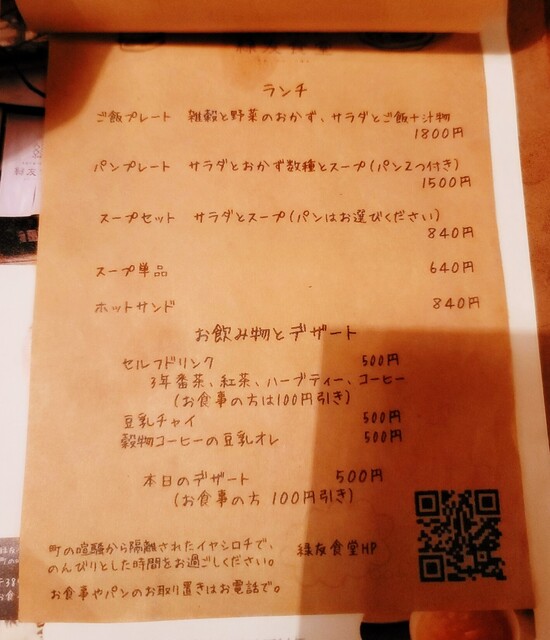 ランチ
ご飯プレート 雑穀と野菜のおかず、サラダとご飯+汁物
1800円
パンプレート サラダとおかず数種とスープ(パン2つ付き)
1500円
スープセット サラダとスープ(パンはお選びください)
840円
スープ単品 640円
ホットサンド 840円
お飲み物とデザート
セルフドリンク 500円
3年番茶、紅茶、ハーブティー、コーヒー
(お食事の方は100円引き)
豆乳チャイ 500円
穀物コーヒーの豆乳オレ 500円
本日のデザート 500円
(お食事の方 100円引き)
町の喧騒から隔離されたイヤシロチで、
のんびりとした時間をお過ごしください。
緑友食堂HP
お食事やパンのお取り置きはお電話で。